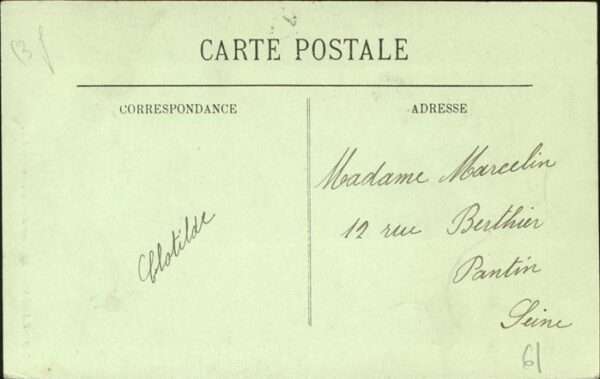 CARTE POSTALE
CORRESPONDANCE
ADRESSE
Clotilde
Madame Marcelin
12 rue Berthier
Pantin
Seine
61